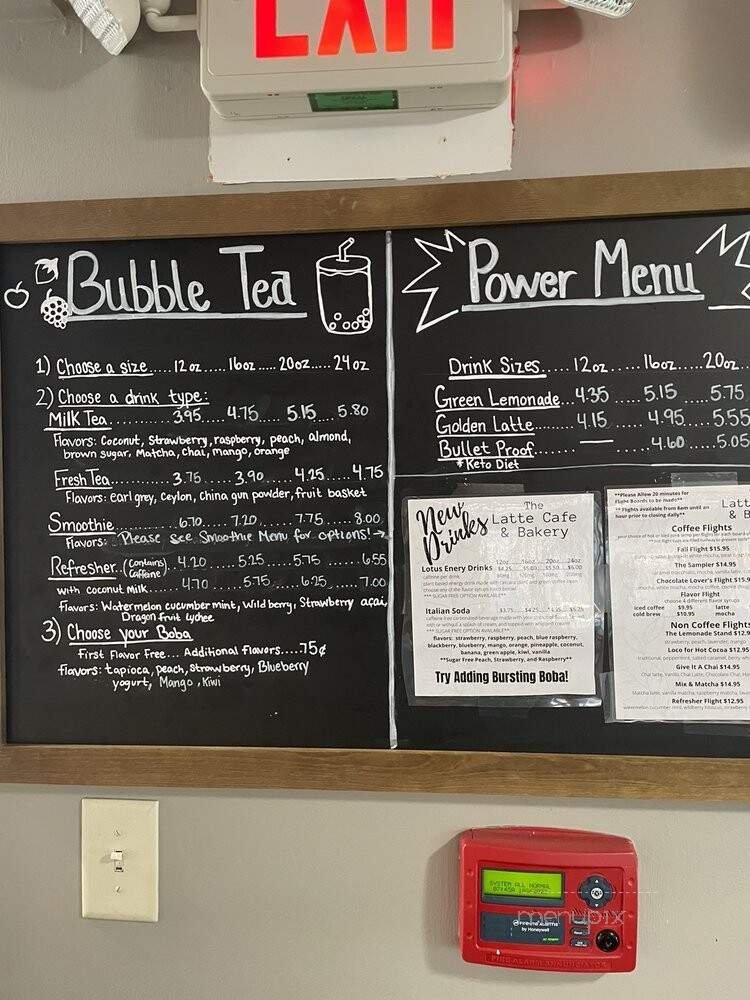 EXIT
Bubble Tea
1) Choose a size.....12oz.....16oz.....20oz.....24oz
2) Choose a drink type:
Milk Tea..........3.95.....4.75.....5.15....5.80
Flavors: Coconut, Strawberry, raspberry, peach, almond,
brown sugar, Matcha, chai, mango, orange
Fresh Tea..........3.75.....3.90.....4.25.....4.75
Flavors: earl grey, ceylon, china gun powder, fruit basket
Smoothie..........6.70.....7.20.....7.75.....8.00
Flavors: Please see Smoothie Menu for options!→
Refresher (Contains Caffeine) 4.20.....5.25.....5.75.....6.55
with coconut milk.....4.70.....5.75.....6.25.....7.00
Flavors: Watermelon cucumber mint, Wild berry, Strawberry acai,
Dragon fruit Lychee
3) Choose your Boba
First Flavor Free... Additional flavors....75¢
flavors: tapioca, peach, strawberry, Blueberry
yogurt, Mango, Kiwi
Power Menu
Drink Sizes.....12oz.....16oz.....20oz
Green Lemonade...4.35.....5.15.....5.75
Golden Latte.....4.15.....4.95.....5.55
Bullet Proof.....—.....4.60.....5.05
*Keto Diet
New Drinks
The
Latte Cafe
& Bakery
12oz 16oz 20oz 24oz
Lotus Enery Drinks
caffeine per drink
*** SUGAR FREE OPTION AVAILABLE***
Italian Soda
*** SUGAR FREE OPTION AVAILABLE***
flavors: strawberry, raspberry, peach, blue raspberry,
blackberry, blueberry, mango, orange, pineapple, coconut,
banana, green apple, kiwi, vanilla
**Sugar Free Peach, Strawberry, and Raspberry**
Try Adding Bursting Boba!
**Please Allow 20 minutes for
Flight Boards to be made**
** Flights available from 8am until an
hour prior to closing daily**
Latt
& B
Coffee Flights
Fall Flight $15.95
The Sampler $14.95
Chocolate Lover's Flight $15.9
Flavor Flight
choose 4 different flavor syrups
iced coffee $9.95 latte
cold brew $10.95 mocha
Non Coffee Flights
The Lemonade Stand $12.9
strawberry, peach, lavender, mango
Loco for Hot Cocoa $12.95
Give It A Chai $14.95
Mix & Matcha $14.95
Refresher Flight $12.95
SYSTEM ALL NORMAL
FIRE-LITE ALARMS
by Honeywell
FIRE ALARM ANNUNCIATOR
menupix